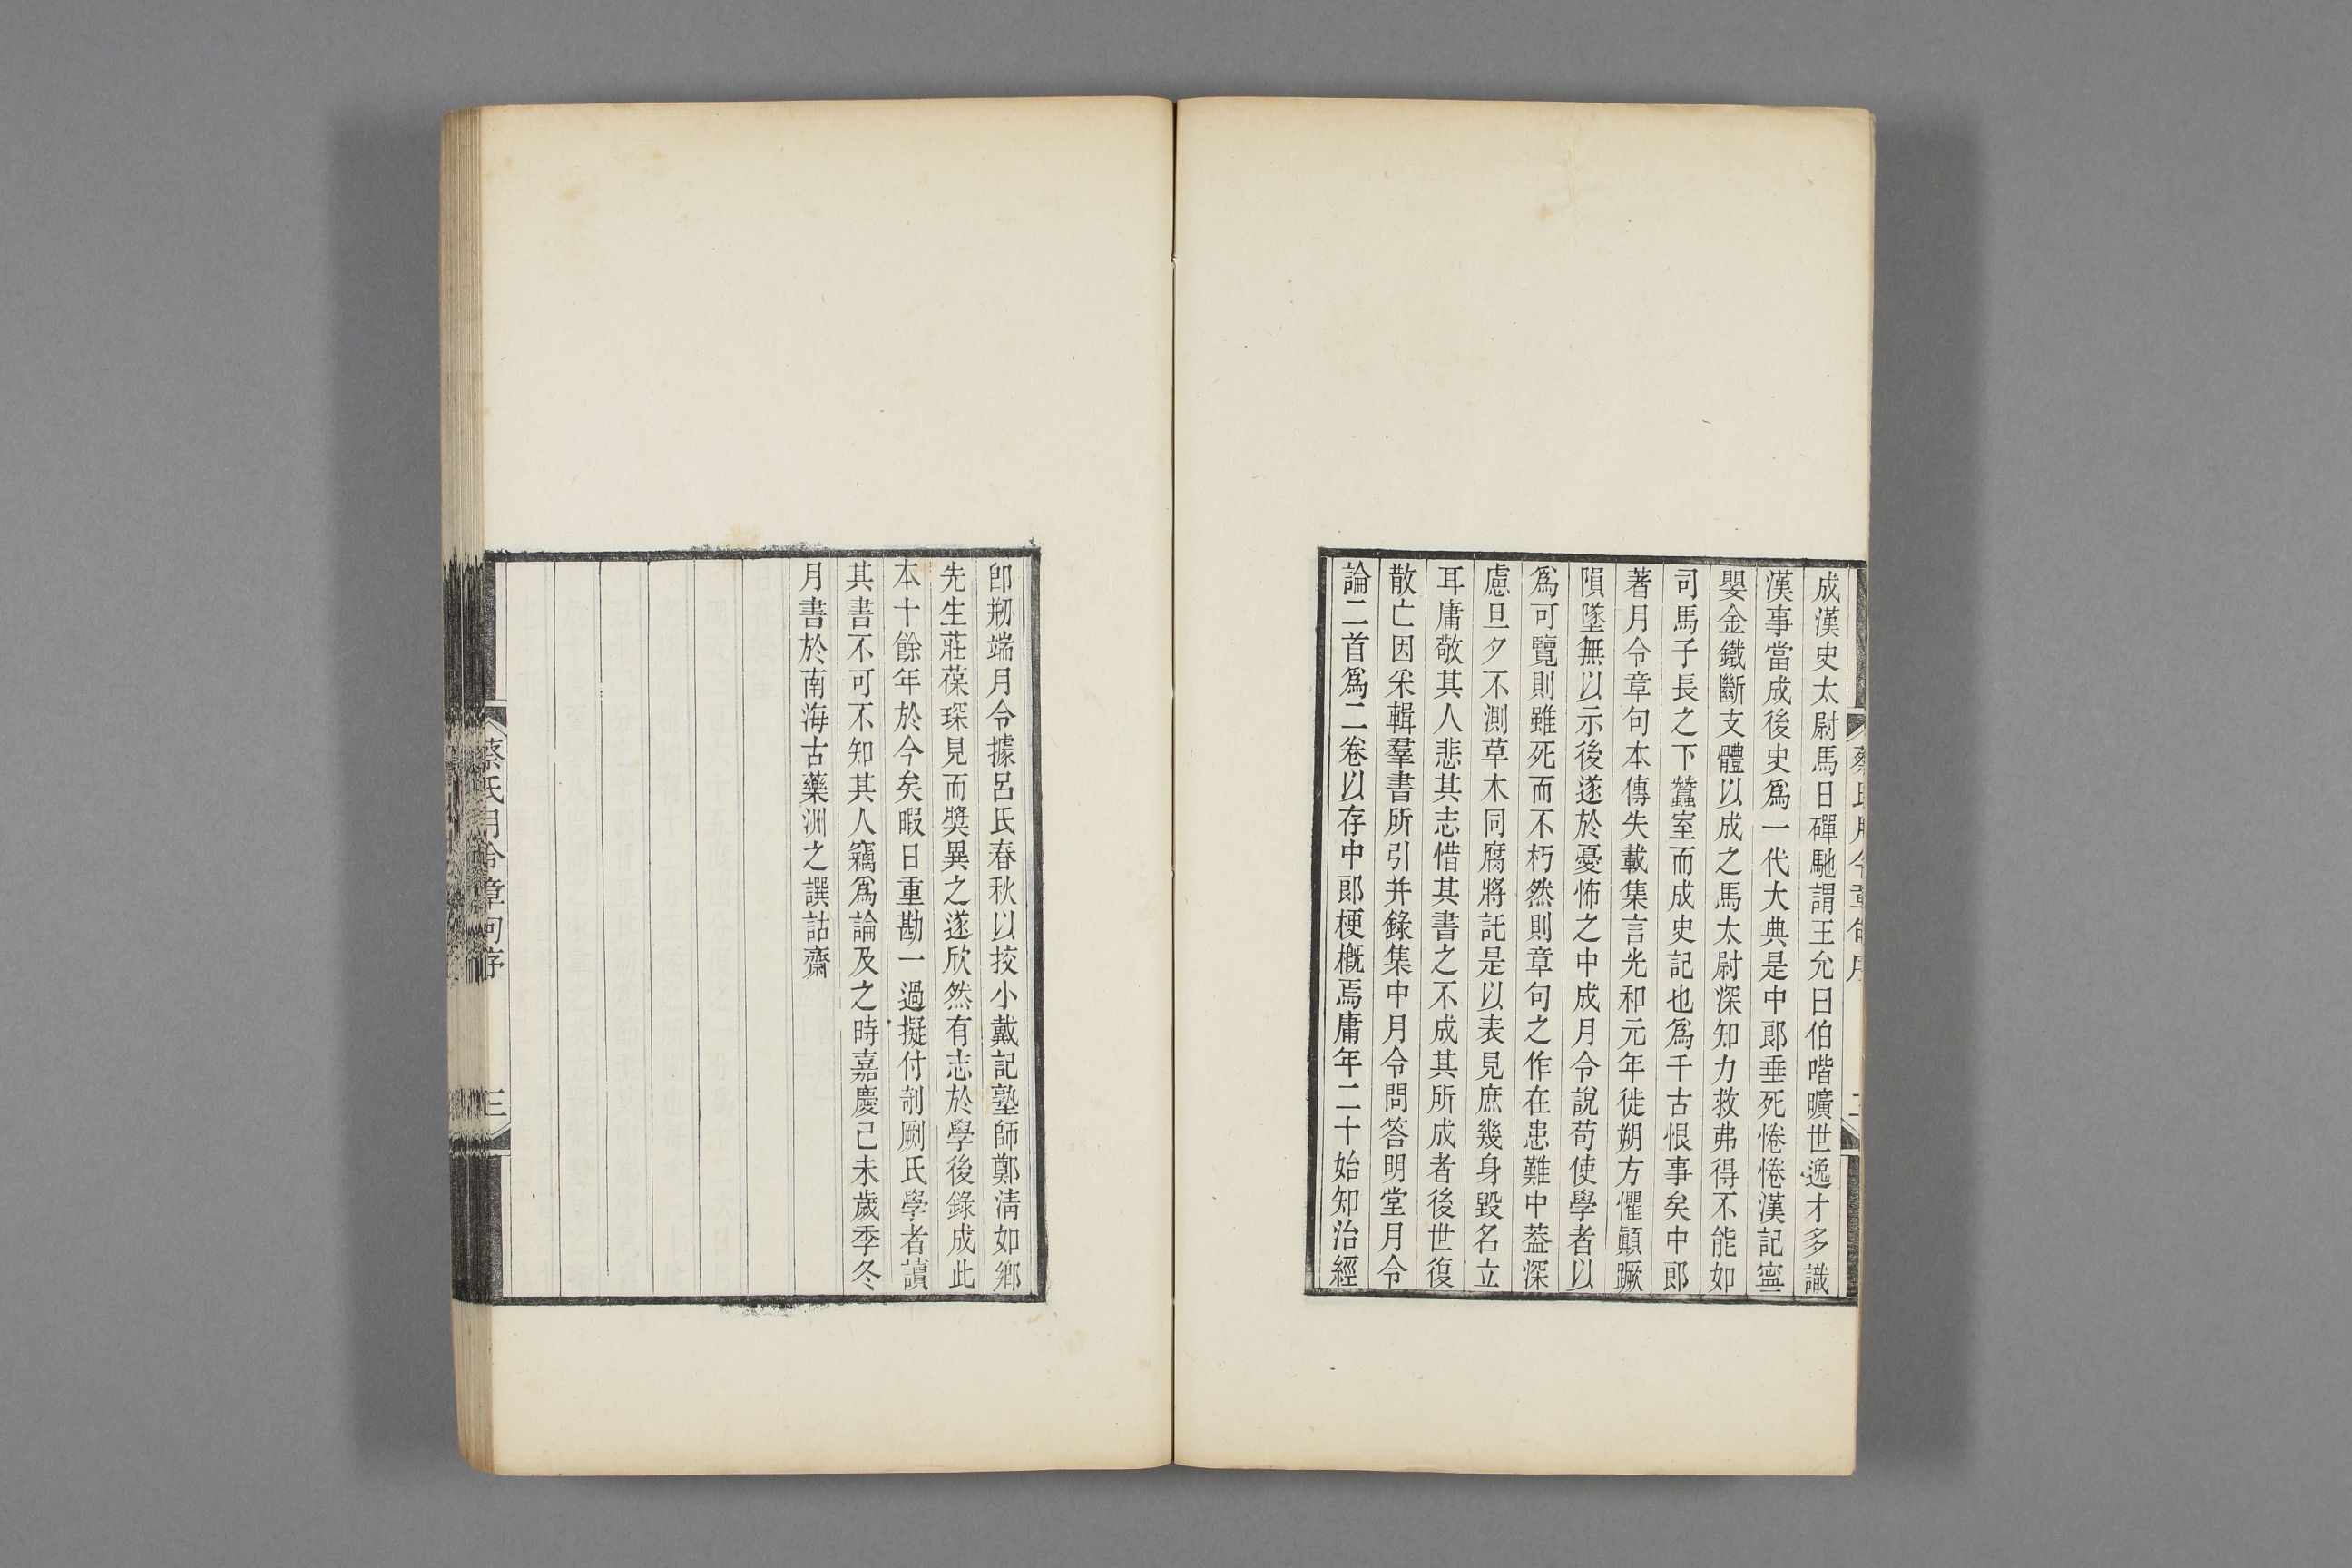 成漢史太尉馬日磾馳謂王允曰伯喈曠世逸才多識
漢事當成後史爲一代大典是中郎垂死惓惓漢記寧
嬰金鐵斷支體以成之馬太尉深知力救弗得不能如
司馬子長之下蠶室而成史記也爲千古恨事矣中郎
著月令章句本傳失載集言光和元年徙朔方懼顚蹶
隕墜無以示後遂於憂怖之中成月令說苟使學者以
爲可覽則雖死而不朽然則章句之作在患難中葢深
慮旦夕不測草木同腐將託是以表見庶幾身毀名立
耳庸敬其人悲其志惜其書之不成其所成者後世復
散亡因采輯羣書所引并錄集中月令問答明堂月令
論二首爲二卷以存中郎梗槪焉庸年二十始知治經
蔡氏月令章句序
二
卽剏端月令據呂氏春秋以挍小戴記塾師鄭淸如鄉
先生莊葆琛見而奬異之遂欣然有志於學後錄成此
本十餘年於今矣暇日重勘一過擬付剞劂氏學者讀
其書不可不知其人竊爲論及之時嘉慶己未歲季冬
月書於南海古藥洲之譔詁齋
蔡氏月令章句序
三